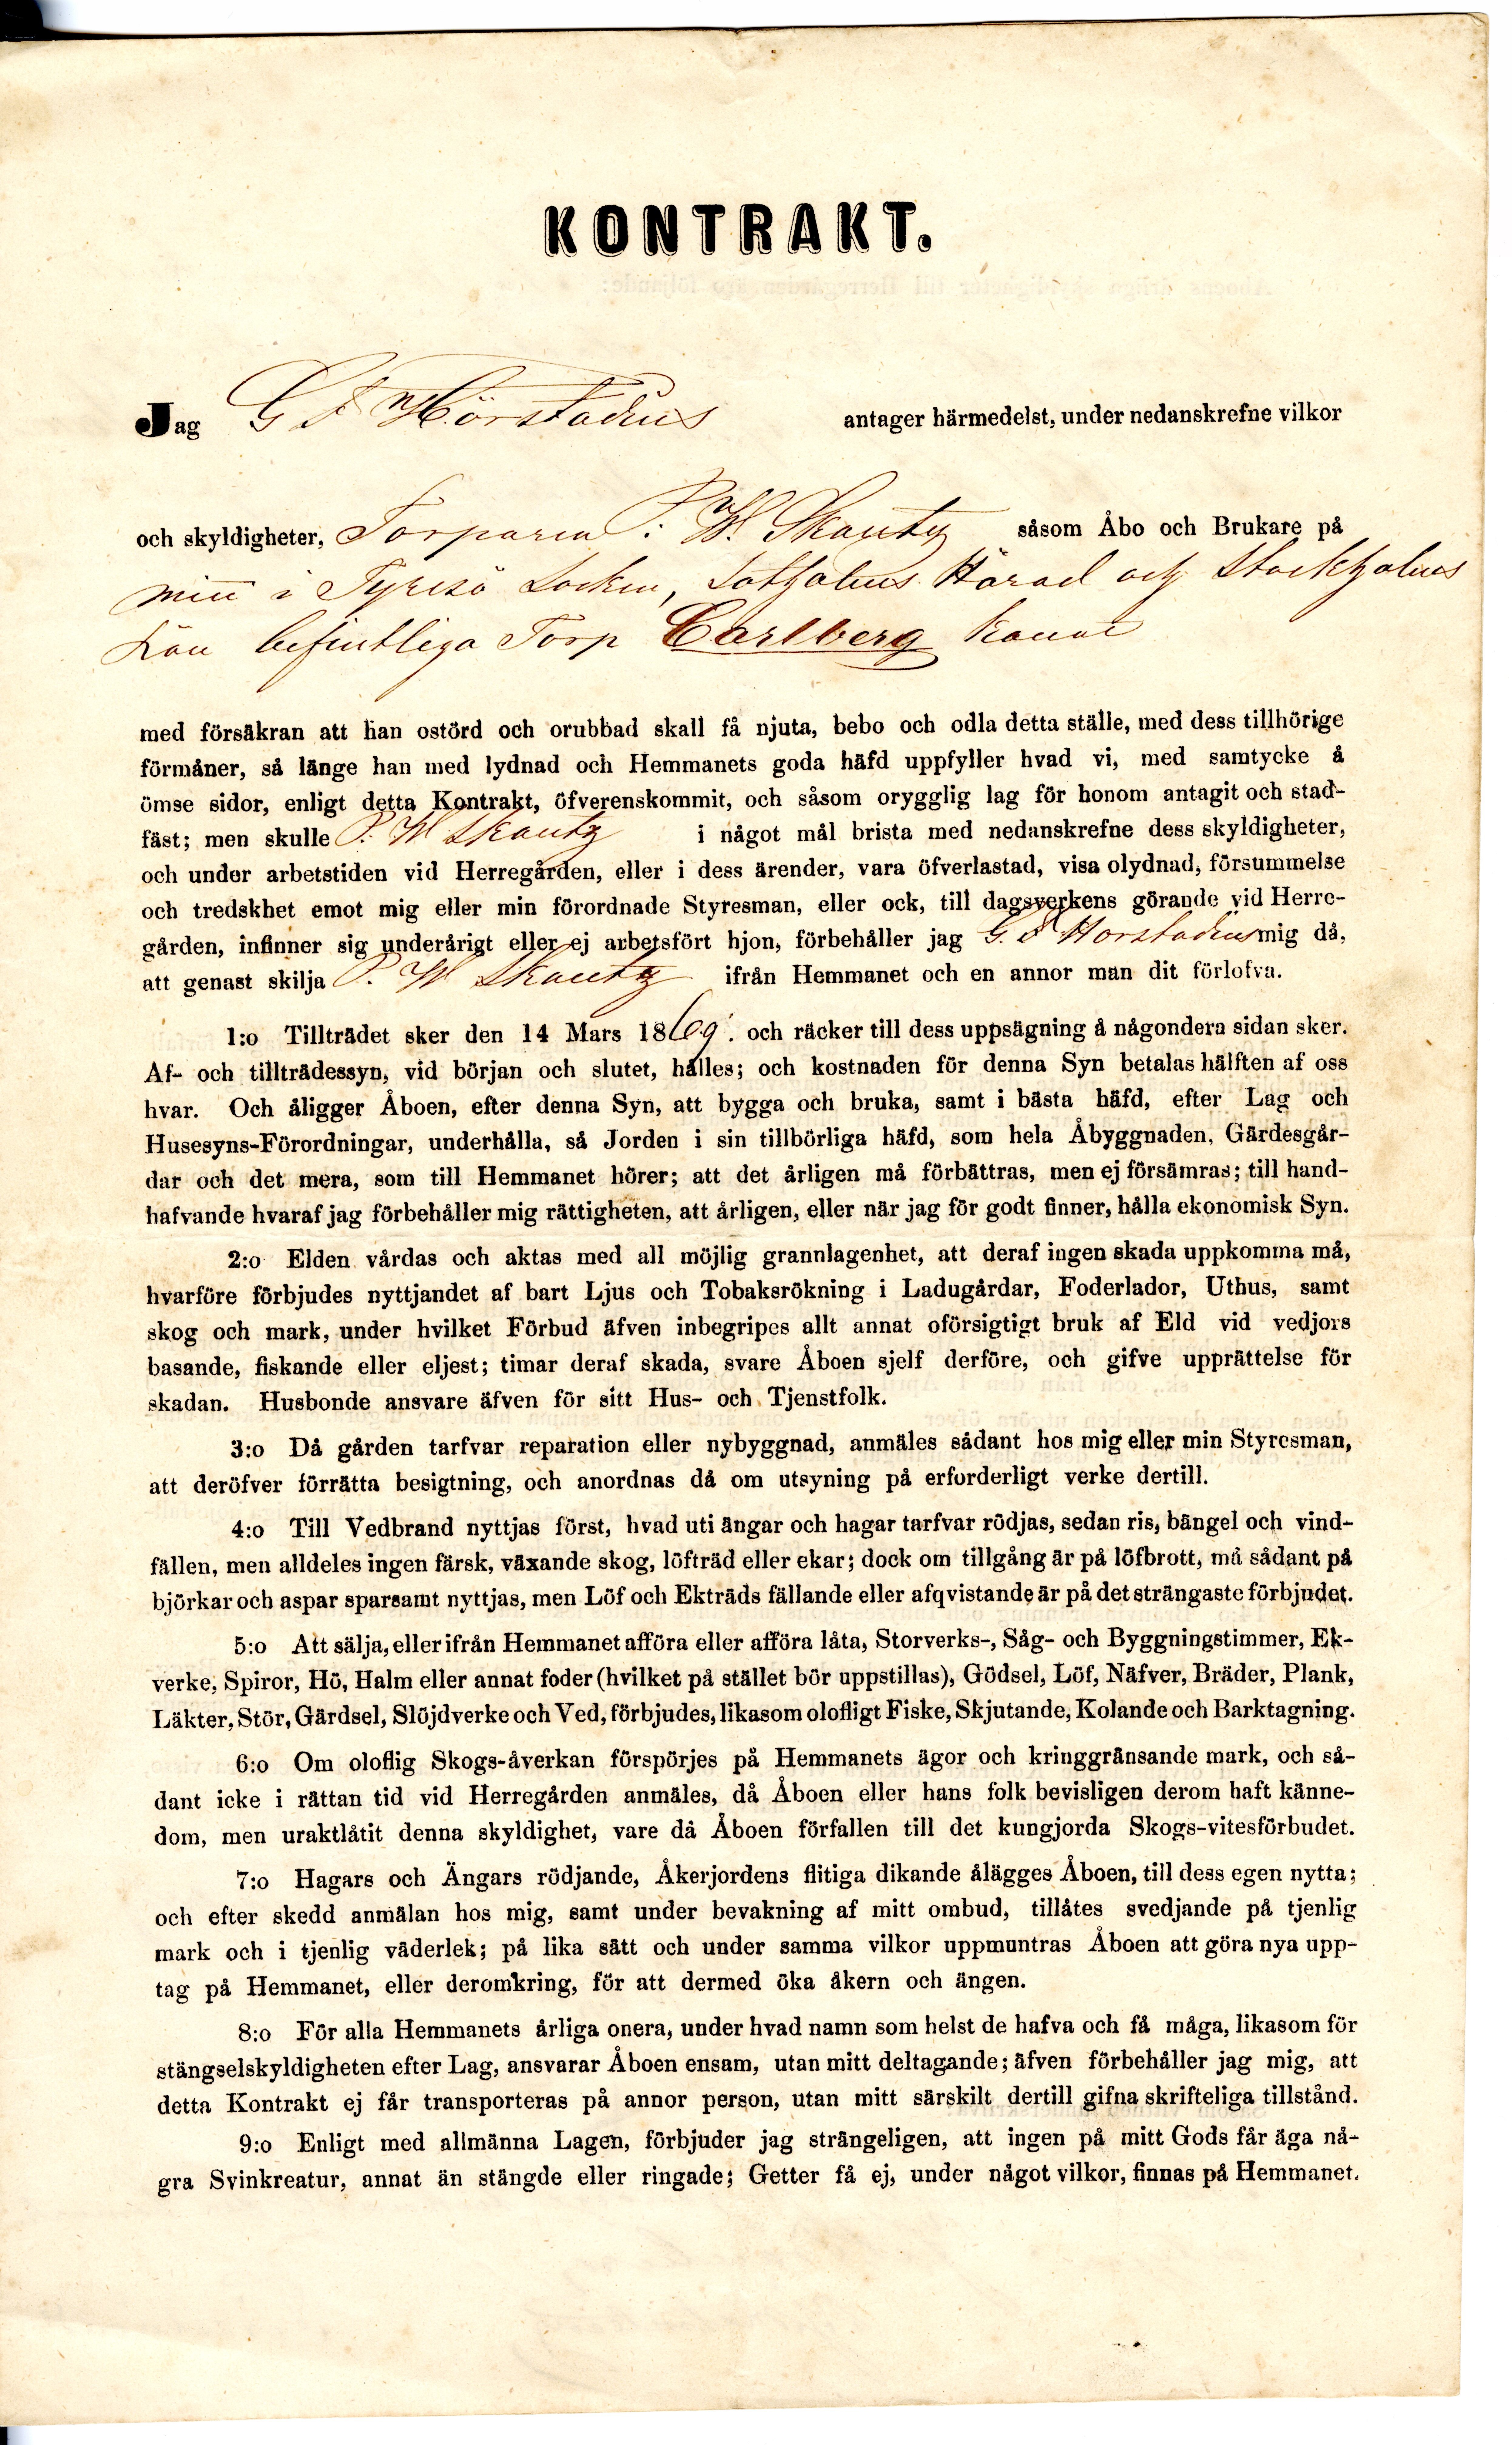 KONTRAKT.
Jag G F Hörstadius antager härmedelst, under nedanskrefne vilkor
och skyldigheter, Torparen P. W. Skantz såsom Åbo och Brukare på
min i Tyresö Socken, Sotholms Härad och Stockholms
Län befintliga Torp Carlberg kallat
med försäkran att han ostörd och orubbad skall få njuta, bebo och odla detta ställe, med dess tillhörige
förmåner, så länge han med lydnad och Hemmanets goda häfd uppfyller hvad vi, med samtycke å
ömse sidor, enligt detta Kontrakt, öfverenskommit, och såsom orygglig lag för honom antagit och stad-
fäst; men skulle P. W Skantz i något mål brista med nedanskrefne dess skyldigheter,
och under arbetstiden vid Herregården, eller i dess ärender, vara öfverlastad, visa olydnad, försummelse
och tredskhet emot mig eller min förordnade Styresman, eller ock, till dagsverkens görande vid Herre-
gården, infinner sig underårigt eller ej arbetsfört hjon, förbehåller jag G. F Horstadius mig då,
att genast skilja P. W Skantz ifrån Hemmanet och en annor man dit förlofva.
1:o Tillträdet sker den 14 Mars 1869. och räcker till dess uppsägning å någondera sidan sker.
Af- och tillträdessyn, vid början och slutet, hålles; och kostnaden för denna Syn betalas hälften af oss
hvar. Och åligger Åboen, efter denna Syn, att bygga och bruka, samt i bästa häfd, efter Lag och
Husesyns-Förordningar, underhålla, så Jorden i sin tillbörliga häfd, som hela Åbyggnaden, Gärdesgår-
dar och det mera, som till Hemmanet hörer; att det årligen må förbättras, men ej försämras; till hand-
hafvande hvaraf jag förbehåller mig rättigheten, att årligen, eller när jag för godt finner, hålla ekonomisk Syn.
2:o Elden vårdas och aktas med all möjlig grannlagenhet, att deraf ingen skada uppkomma må,
hvarföre förbjudes nyttjandet af bart Ljus och Tobaksrökning i Ladugårdar, Foderlador, Uthus, samt
skog och mark, under hvilket Förbud äfven inbegripes allt annat oförsigtigt bruk af Eld vid vedjors
basande, fiskande eller eljest; timar deraf skada, svare Åboen sjelf derföre, och gifve upprättelse för
skadan. Husbonde ansvare äfven för sitt Hus- och Tjenstfolk.
3:o Då gården tarfvar reparation eller nybyggnad, anmäles sådant hos mig eller min Styresman,
att deröfver förrätta besigtning, och anordnas då om utsyning på erforderligt verke dertill.
4:o Till Vedbrand nyttjas först, hvad uti ängar och hagar tarfvar rödjas, sedan ris, bängel och vind-
fällen, men alldeles ingen färsk, växande skog, löfträd eller ekar; dock om tillgång är på löfbrott, må sådant på
björkar och aspar sparsamt nyttjas, men Löf och Ekträds fällande eller afqvistande är på det strängaste förbjudet.
5:o Att sälja, eller ifrån Hemmanet afföra eller afföra låta, Storverks-, Såg- och Byggningstimmer, Ek-
verke, Spiror, Hö, Halm eller annat foder (hvilket på stället bör uppstillas), Gödsel, Löf, Näfver, Bräder, Plank,
Läkter, Stör, Gärdsel, Slöjdverke och Ved, förbjudes, likasom olofligt Fiske, Skjutande, Kolande och Barktagning.
6:o Om oloflig Skogs-åverkan förspörjes på Hemmanets ägor och kringgränsande mark, och så-
dant icke i rättan tid vid Herregården anmäles, då Åboen eller hans folk bevisligen derom haft känne-
dom, men uraktlåtit denna skyldighet, vare då Åboen förfallen till det kungjorda Skogs-vitesförbudet.
7:o Hagars och Ängars rödjande, Åkerjordens flitiga dikande ålägges Åboen, till dess egen nytta;
och efter skedd anmälan hos mig, samt under bevakning af mitt ombud, tillåtes svedjande på tjenlig
mark och i tjenlig väderlek; på lika sätt och under samma vilkor uppmuntras Åboen att göra nya upp-
tag på Hemmanet, eller deromkring, för att dermed öka åkern och ängen.
8:o För alla Hemmanets årliga onera, under hvad namn som helst de hafva och få måga, likasom för
stängselskyldigheten efter Lag, ansvarar Åboen ensam, utan mitt deltagande; äfven förbehåller jag mig, att
detta Kontrakt ej får transporteras på annor person, utan mitt särskilt dertill gifna skrifteliga tillstånd.
9:o Enligt med allmänna Lagen, förbjuder jag strängeligen, att ingen på mitt Gods får äga nå-
gra Svinkreatur, annat än stängde eller ringade; Getter få ej, under något vilkor, finnas på Hemmanet.